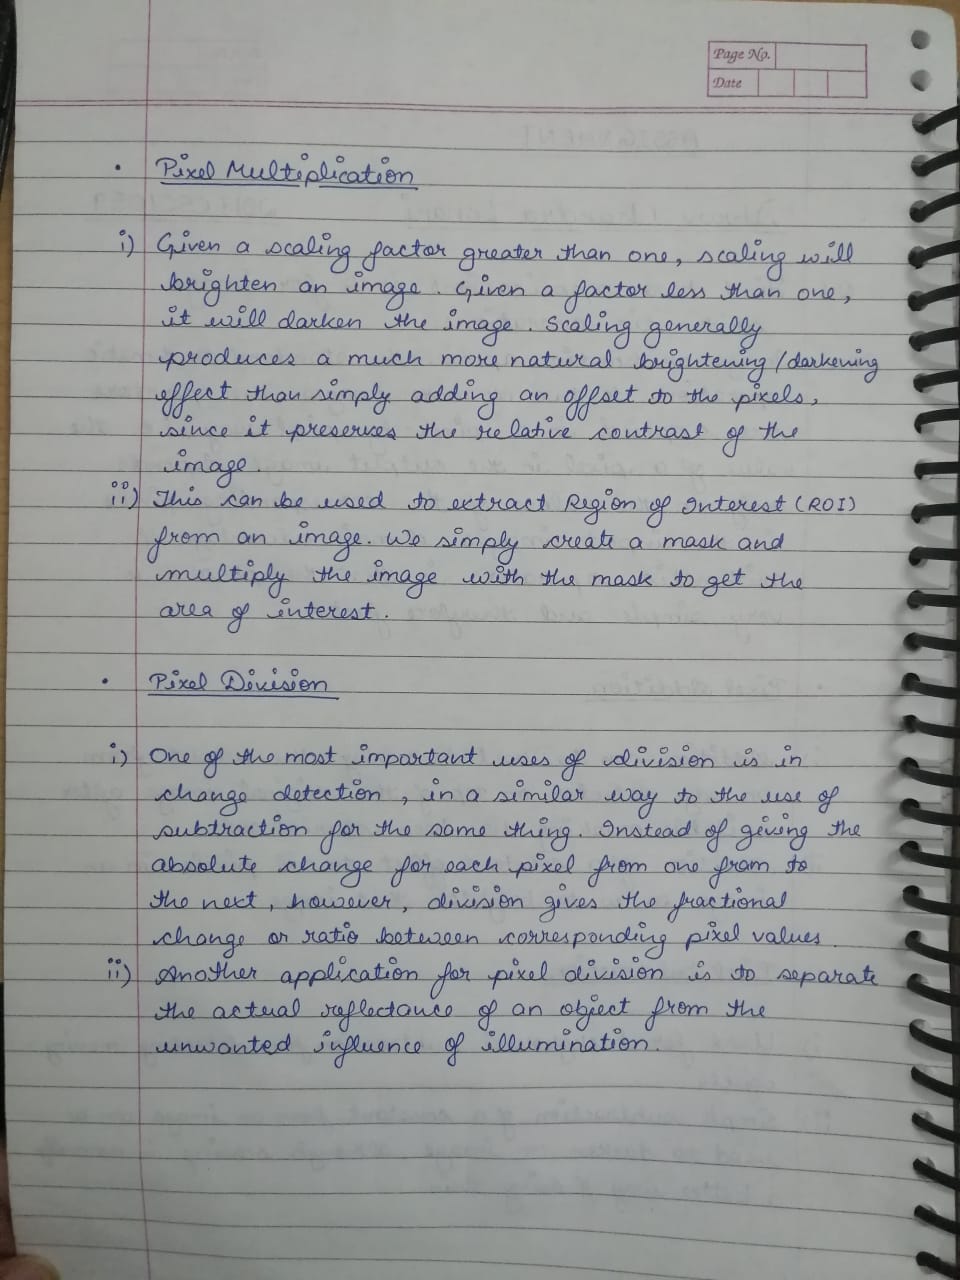 Page No.
Date
• Pixel Multiplication
i) Given a scaling factor greater than one, scaling will
brighten an image. Given a factor less than one,
it will darken the image. Scaling generally
produces a much more natural brightening/darkening
effect than simply adding an offset to the pixels,
since it preserves the relative contrast of the
image.
ii) This can be used to extract Region of Interest (ROI)
from an image. We simply create a mask and
multiply the image with the mask to get the
area of interest.
• Pixel Division
i) One of the most important uses of division is in
change detection, in a similar way to the use of
subtraction for the same thing. Instead of giving the
absolute change for each pixel from one fram to
the next, however, division gives the fractional
change or ratio between corresponding pixel values.
ii) Another application for pixel division is to separate
the actual reflectance of an object from the
unwanted influence of illumination.